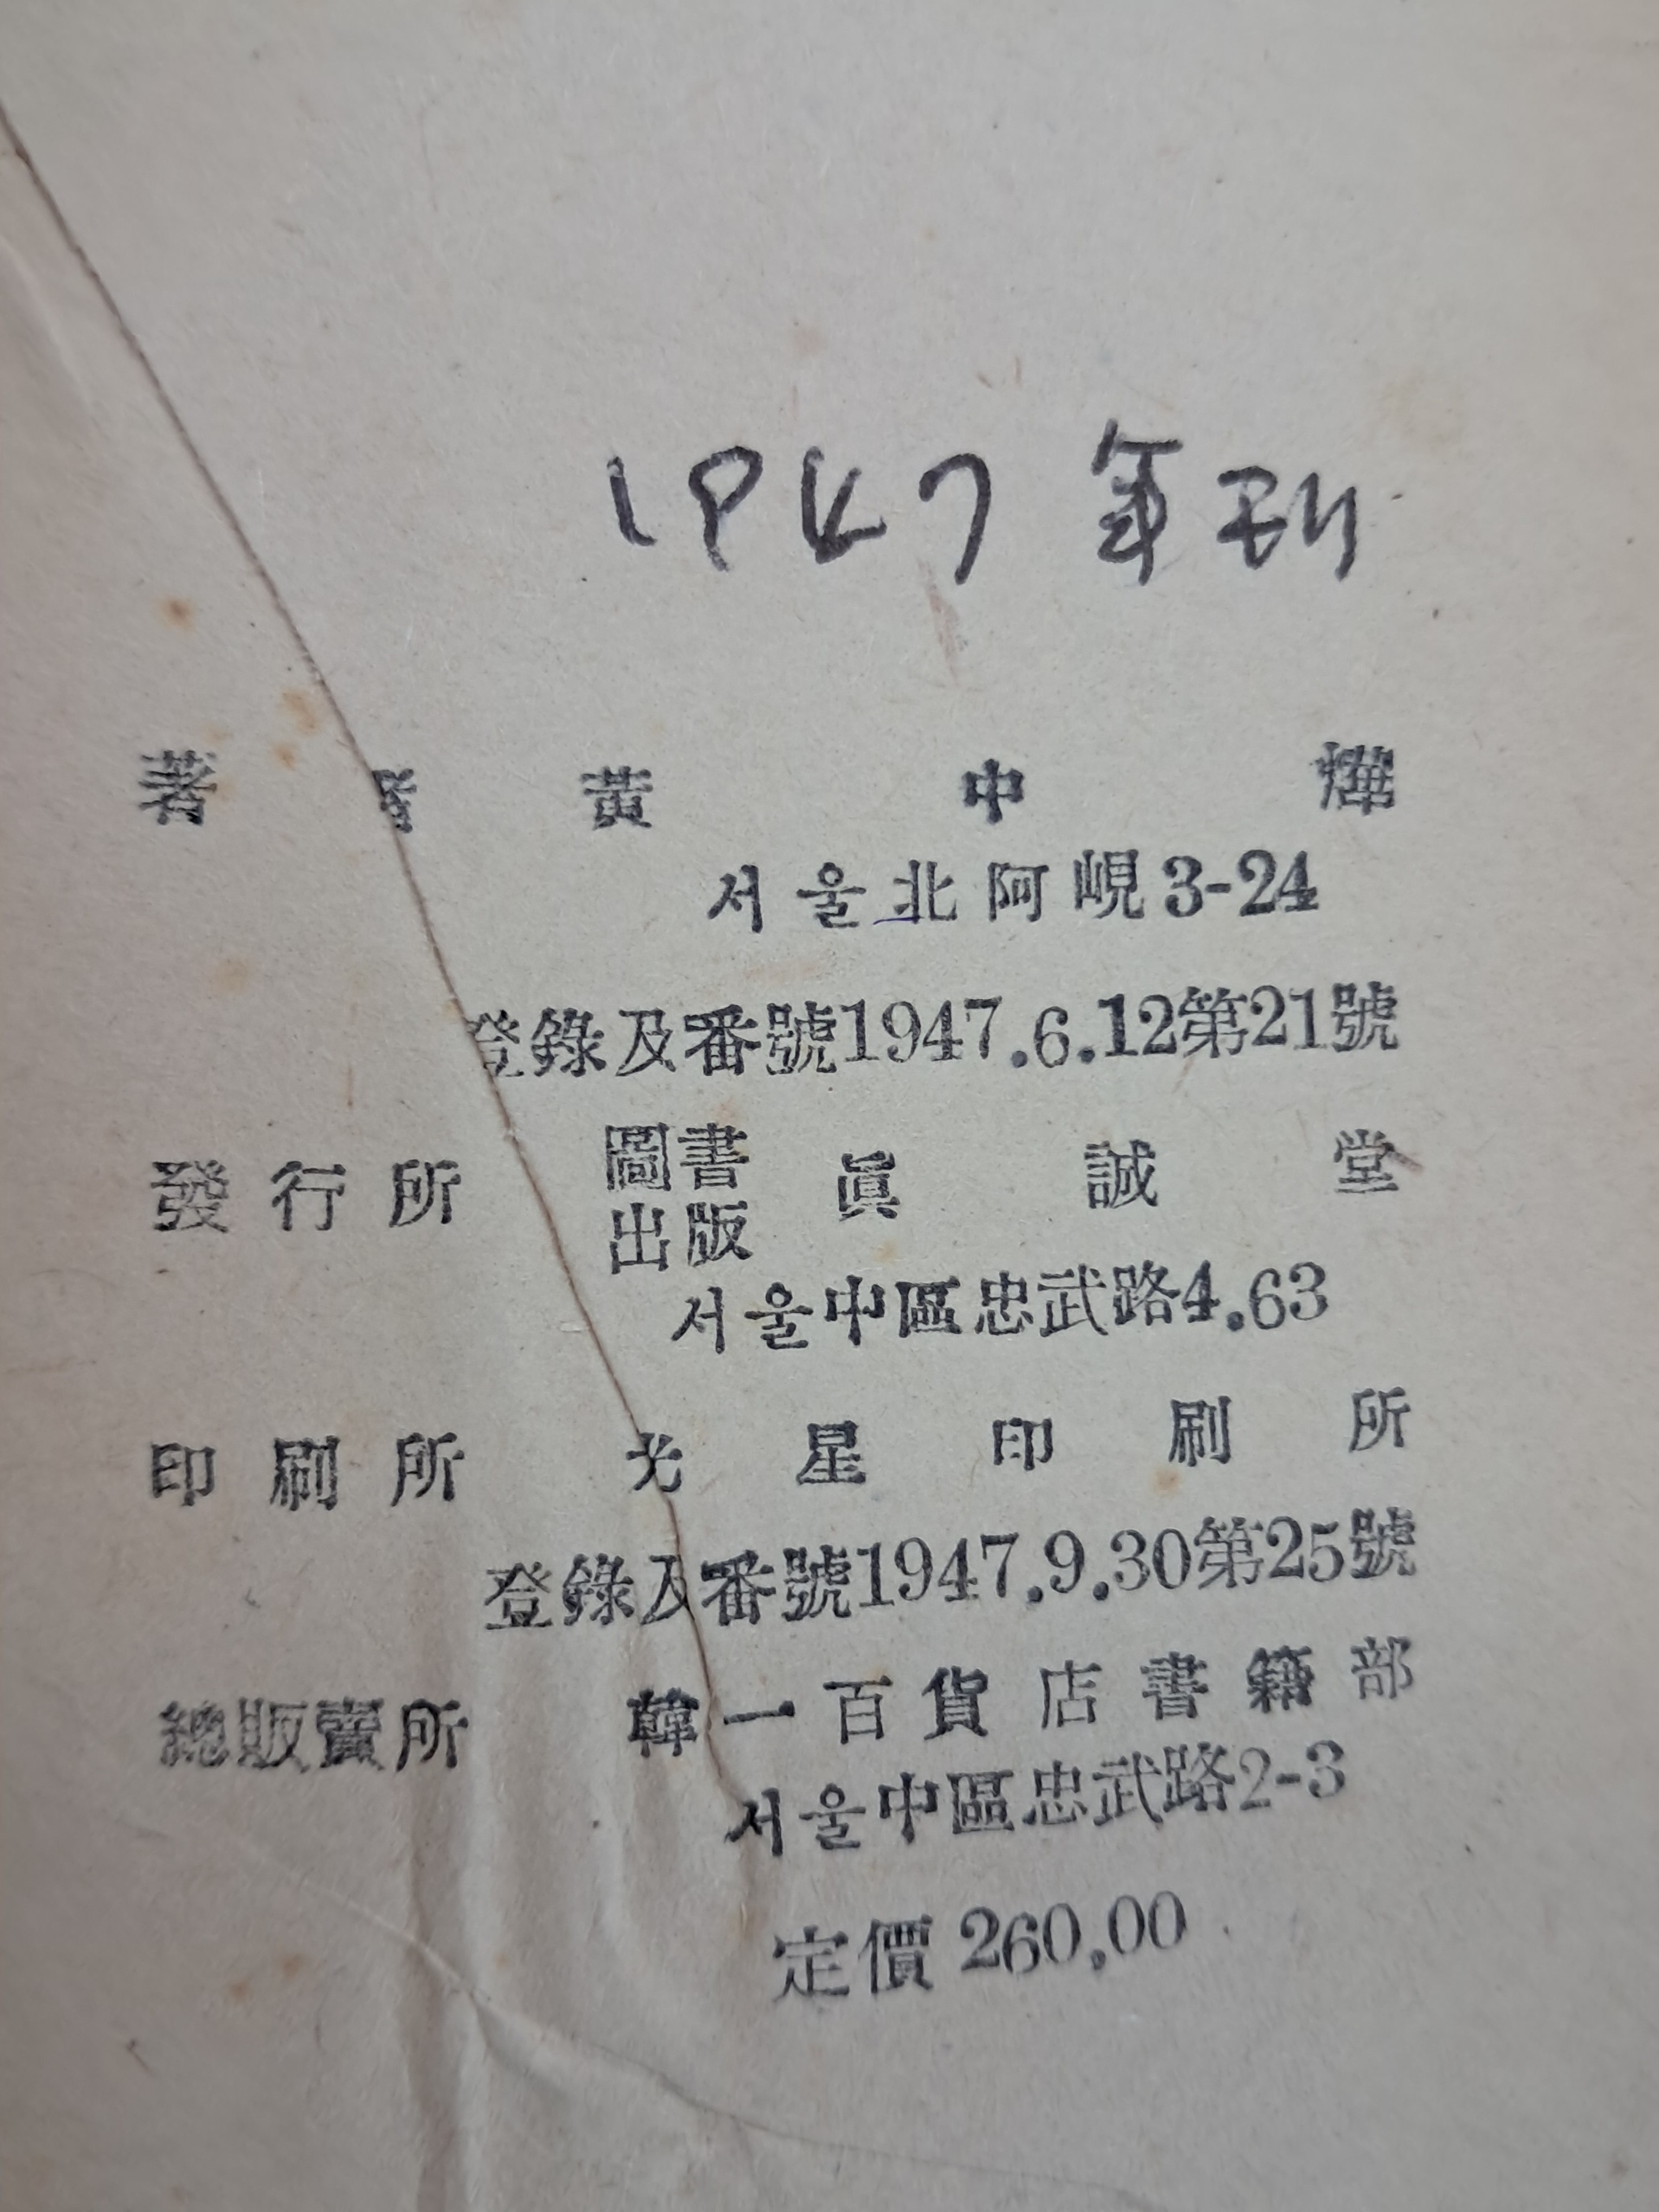 1947 年刊
著者 黃中燁
서울北阿峴3-24
登錄及番號1947.6.12第21號
發行所 圖書出版 眞誠堂
서울中區忠武路4.63
印刷所 光星印刷所
登錄及番號1947.9.30第25號
總販賣所 韓一百貨店書籍部
서울中區忠武路2-3
定價 260.00